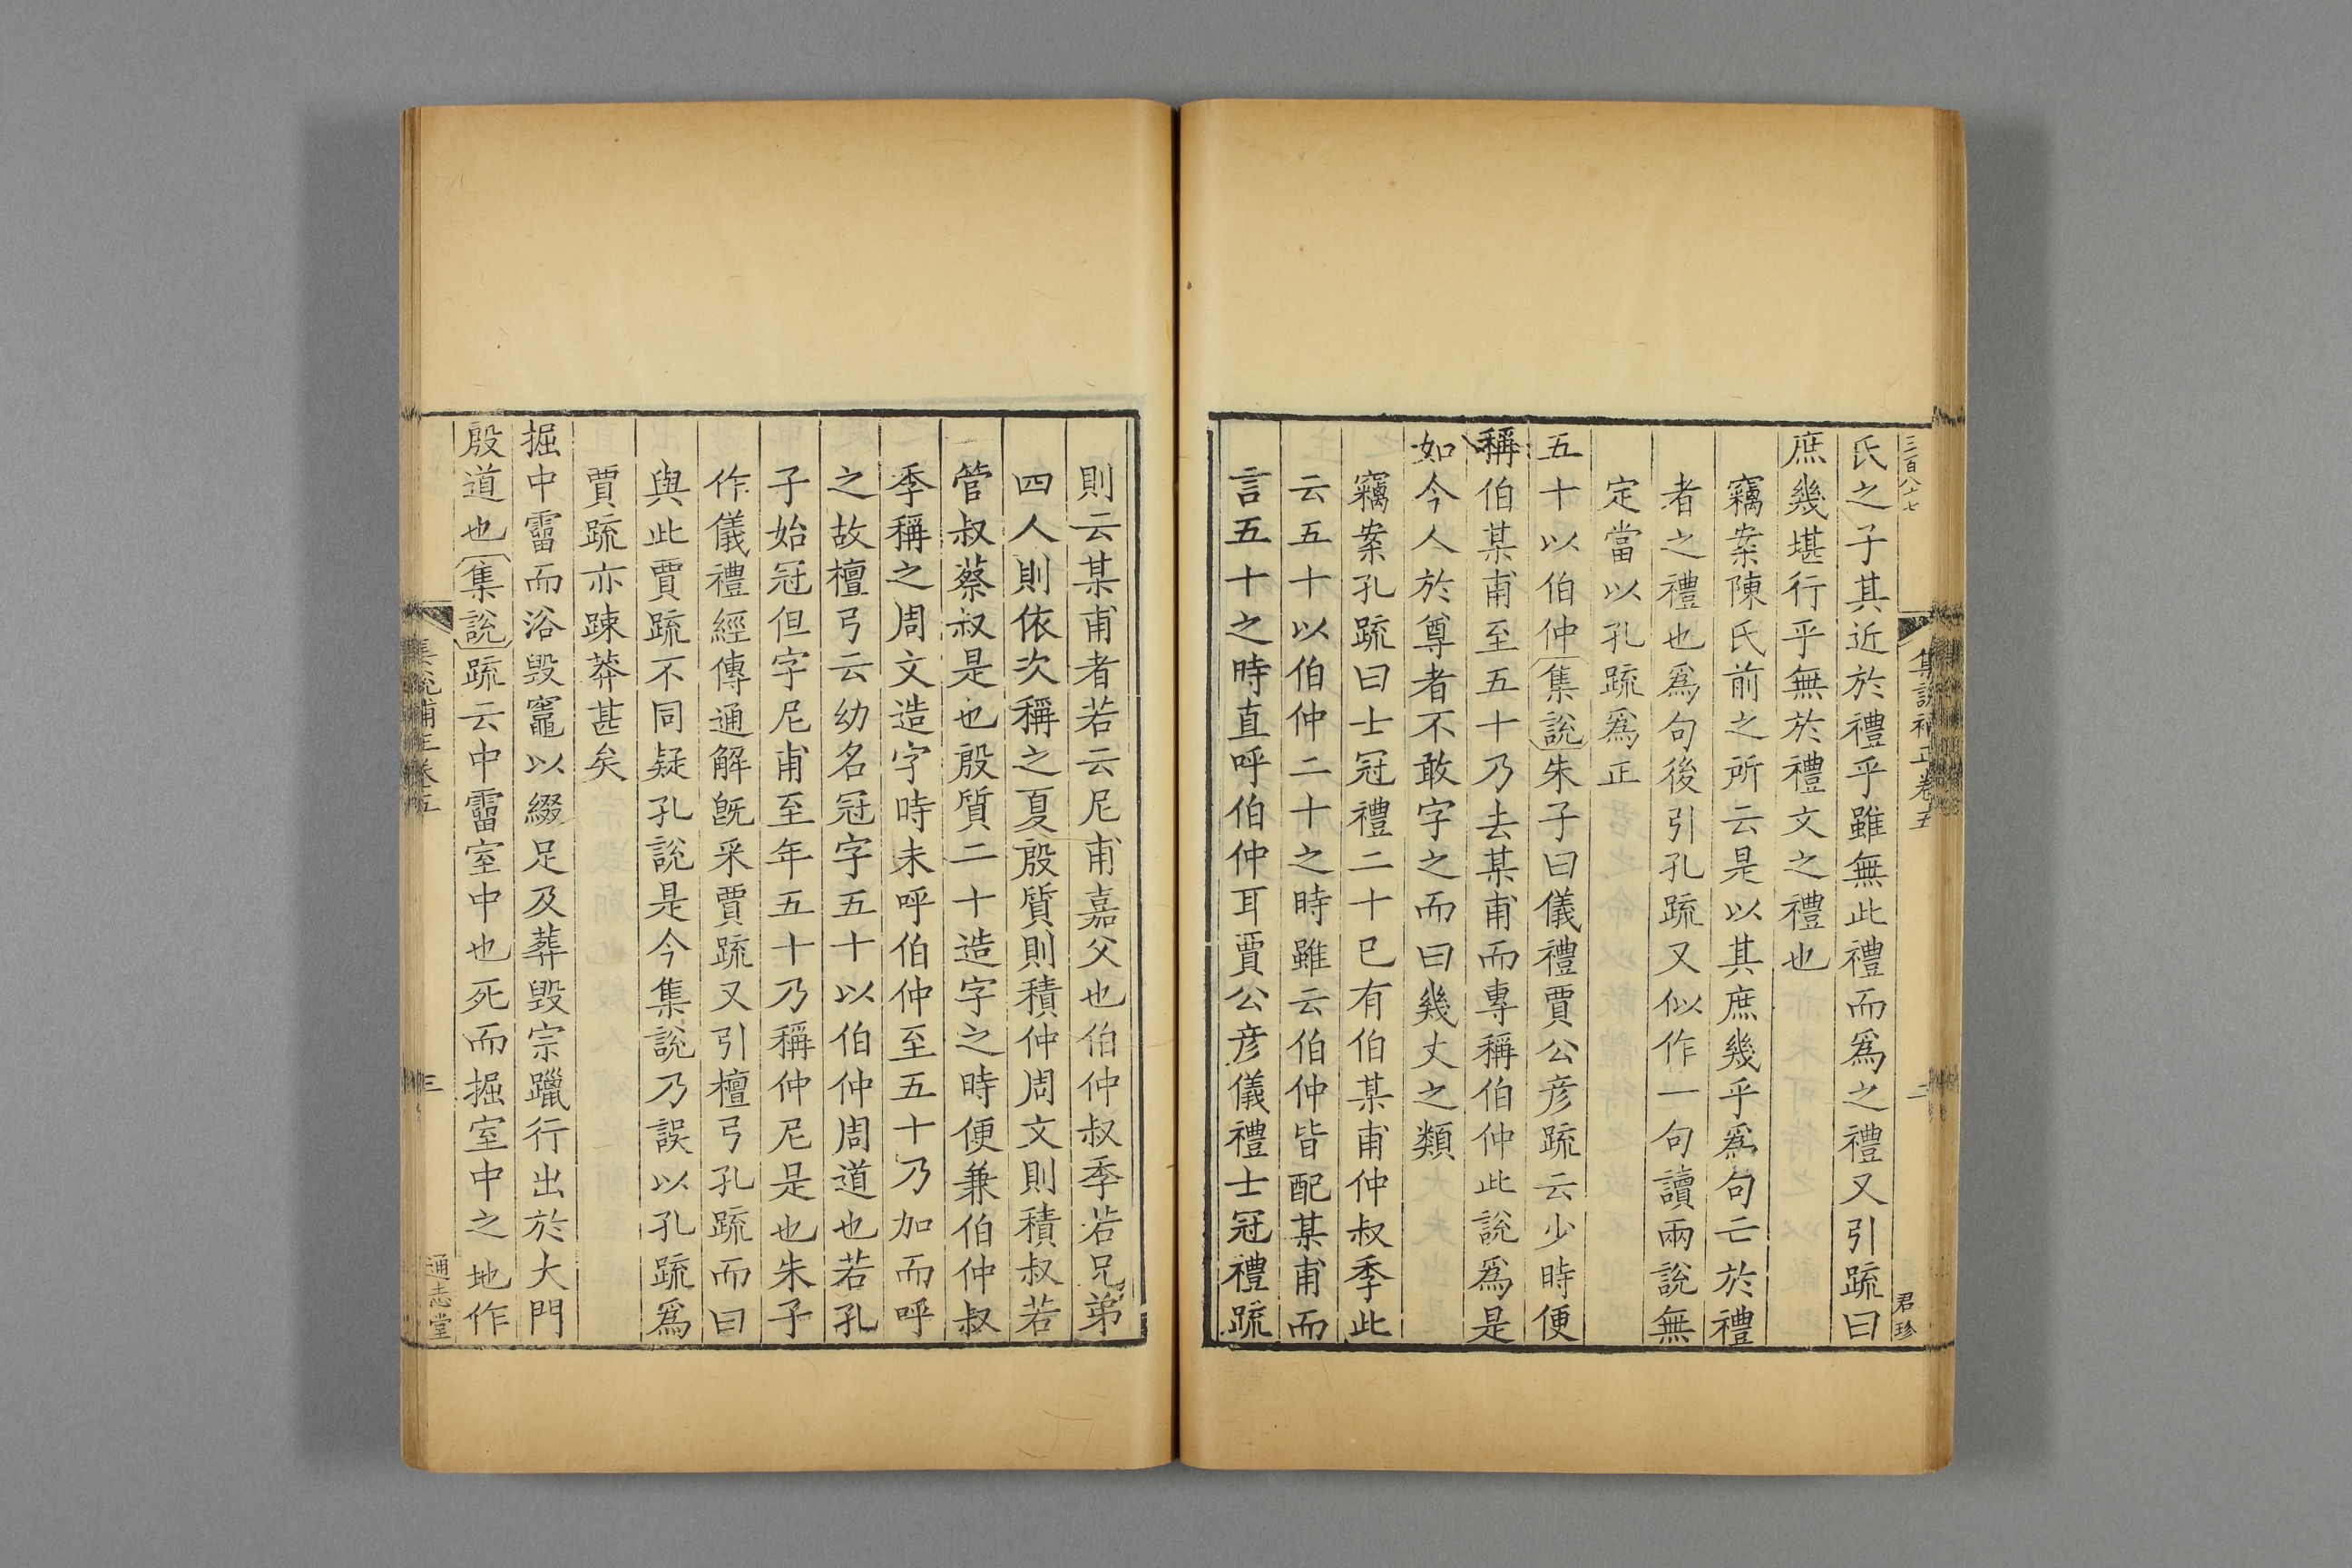 三百八十七
集説補正卷五
二
君珍
氏之子其近於禮乎雖無此禮而爲之禮又引疏曰
庶幾堪行乎無於禮文之禮也
竊案陳氏前之所云是以其庶幾乎爲句亡於禮
者之禮也爲句後引孔疏又似作一句讀兩說無
定當以孔疏爲正
五十以伯仲集説朱子曰儀禮賈公彦疏云少時便
稱伯某甫至五十乃去某甫而專稱伯仲此說爲是
如今人於尊者不敢字之而曰幾丈之類
竊案孔疏曰士冠禮二十已有伯某甫仲叔季此
云五十以伯仲二十之時雖云伯仲皆配某甫而
言五十之時直呼伯仲耳賈公彦儀禮士冠禮疏
則云某甫者若云尼甫嘉父也伯仲叔季若兄弟
四人則依次稱之夏殷質則積仲周文則積叔若
管叔蔡叔是也殷質二十造字之時便兼伯仲叔
季稱之周文造字時未呼伯仲至五十乃加而呼
之故檀弓云幼名冠字五十以伯仲周道也若孔
子始冠但字尼甫至年五十乃稱仲尼是也朱子
作儀禮經傳通解旣采賈疏又引檀弓孔疏而曰
與此賈疏不同疑孔說是今集説乃誤以孔疏爲
賈疏亦踈莽甚矣
掘中霤而浴毁竈以綴足及葬毁宗躐行出於大門
殷道也集説疏云中霤室中也死而掘室中之地作
集説補正卷五
三
通志堂